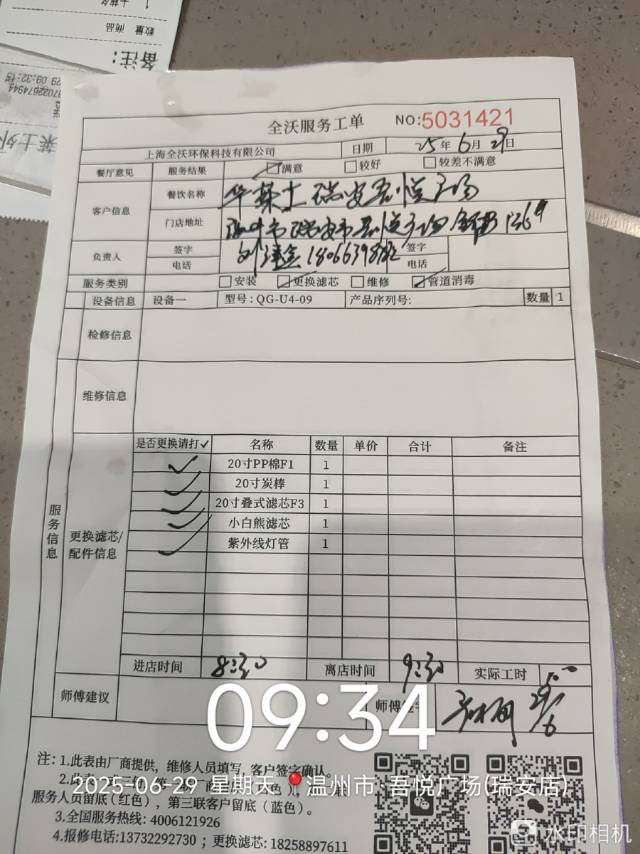 土豆条
数量 商品
备注:
全沃服务工单 NO:5031421
上海全沃环保科技有限公司 日期 25年6月29日
餐厅意见 服务结果 满意 较好 较差不满意
客户信息 餐饮名称 华莱士瑞安吾悦广场
门店地址 温州市瑞安市吾悦广场
负责人 签字 签字
电话 电话
服务类别 安装 更换滤芯 维修 管道消毒
设备信息 设备一 型号:QG-U4-09 产品序列号: 数量 1
检修信息
维修信息
服务信息
更换滤芯/配件信息
是否更换请打✓ 名称 数量 单价 合计 备注
✓ 20寸PP棉F1 1
✓ 20寸炭棒 1
✓ 20寸叠式滤芯F3 1
✓ 小白熊滤芯 1
✓ 紫外线灯管 1
进店时间 8:30 离店时间 9:30 实际工时
师傅建议 师傅签字 29/6
09:34
2025-06-29 星期天 温州市·吾悦广场(瑞安店)
注:1.此表由厂商提供,维修人员填写,客户签字确认。
服务人员留底(红色),第三联客户留底(蓝色)。
3.全国服务热线:4006121926
4.报修电话:13732292730;更换滤芯:18258897611
水印相机